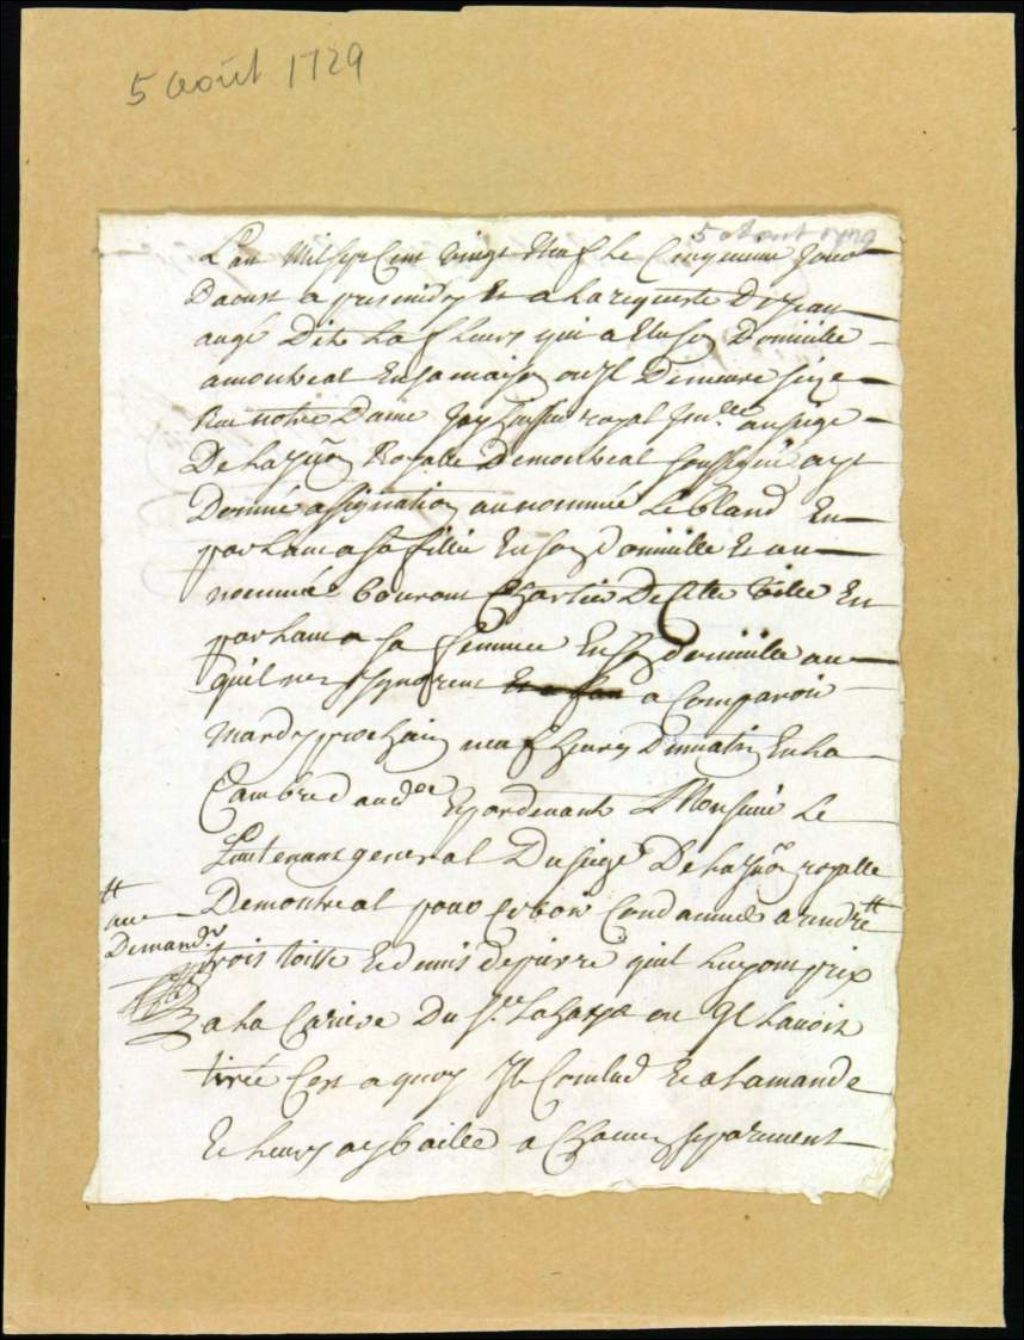 5 août 1729
5 Aout 1729
L'an Mil Sept Cent vingt Neuf le Cinquieme Jour
Daoust apresmidy Et a la requeste De Jean
augé Dit Lafleur qui a Elu son Domicille
a montreal En sa maison ou Il Demeure size
Rue notre Dame Jay huissier royal au siege
De la Jur.on Royalle De montreal soussigné ay
Donné assignation au nommé Lebland En
parlant a sa fille En son domicille Et au
nommé Chartier De Cette ville En
parlant a sa femme En son domicille au
quil nen Ignorent a Comparoir
mardy prochain neuf heures Du matin En La
Cambre daud.ce Et pardevant Monsieur Le
Lieutenant general Du siege De la Jur.on royalle
De montreal pour se voir Condamner a rendre #
# au
Demand.r
trois toisse Et demis de pierre quil luy ont prix
a la Cariere Du S.r ou Il Lavoit
tirée Cest a quoy Il Conclud Et a Lamande
Et leurs ay baillé a Chacun separement